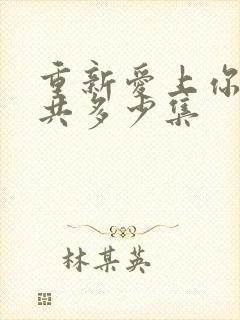 重新爱上你
共多少集
林某英